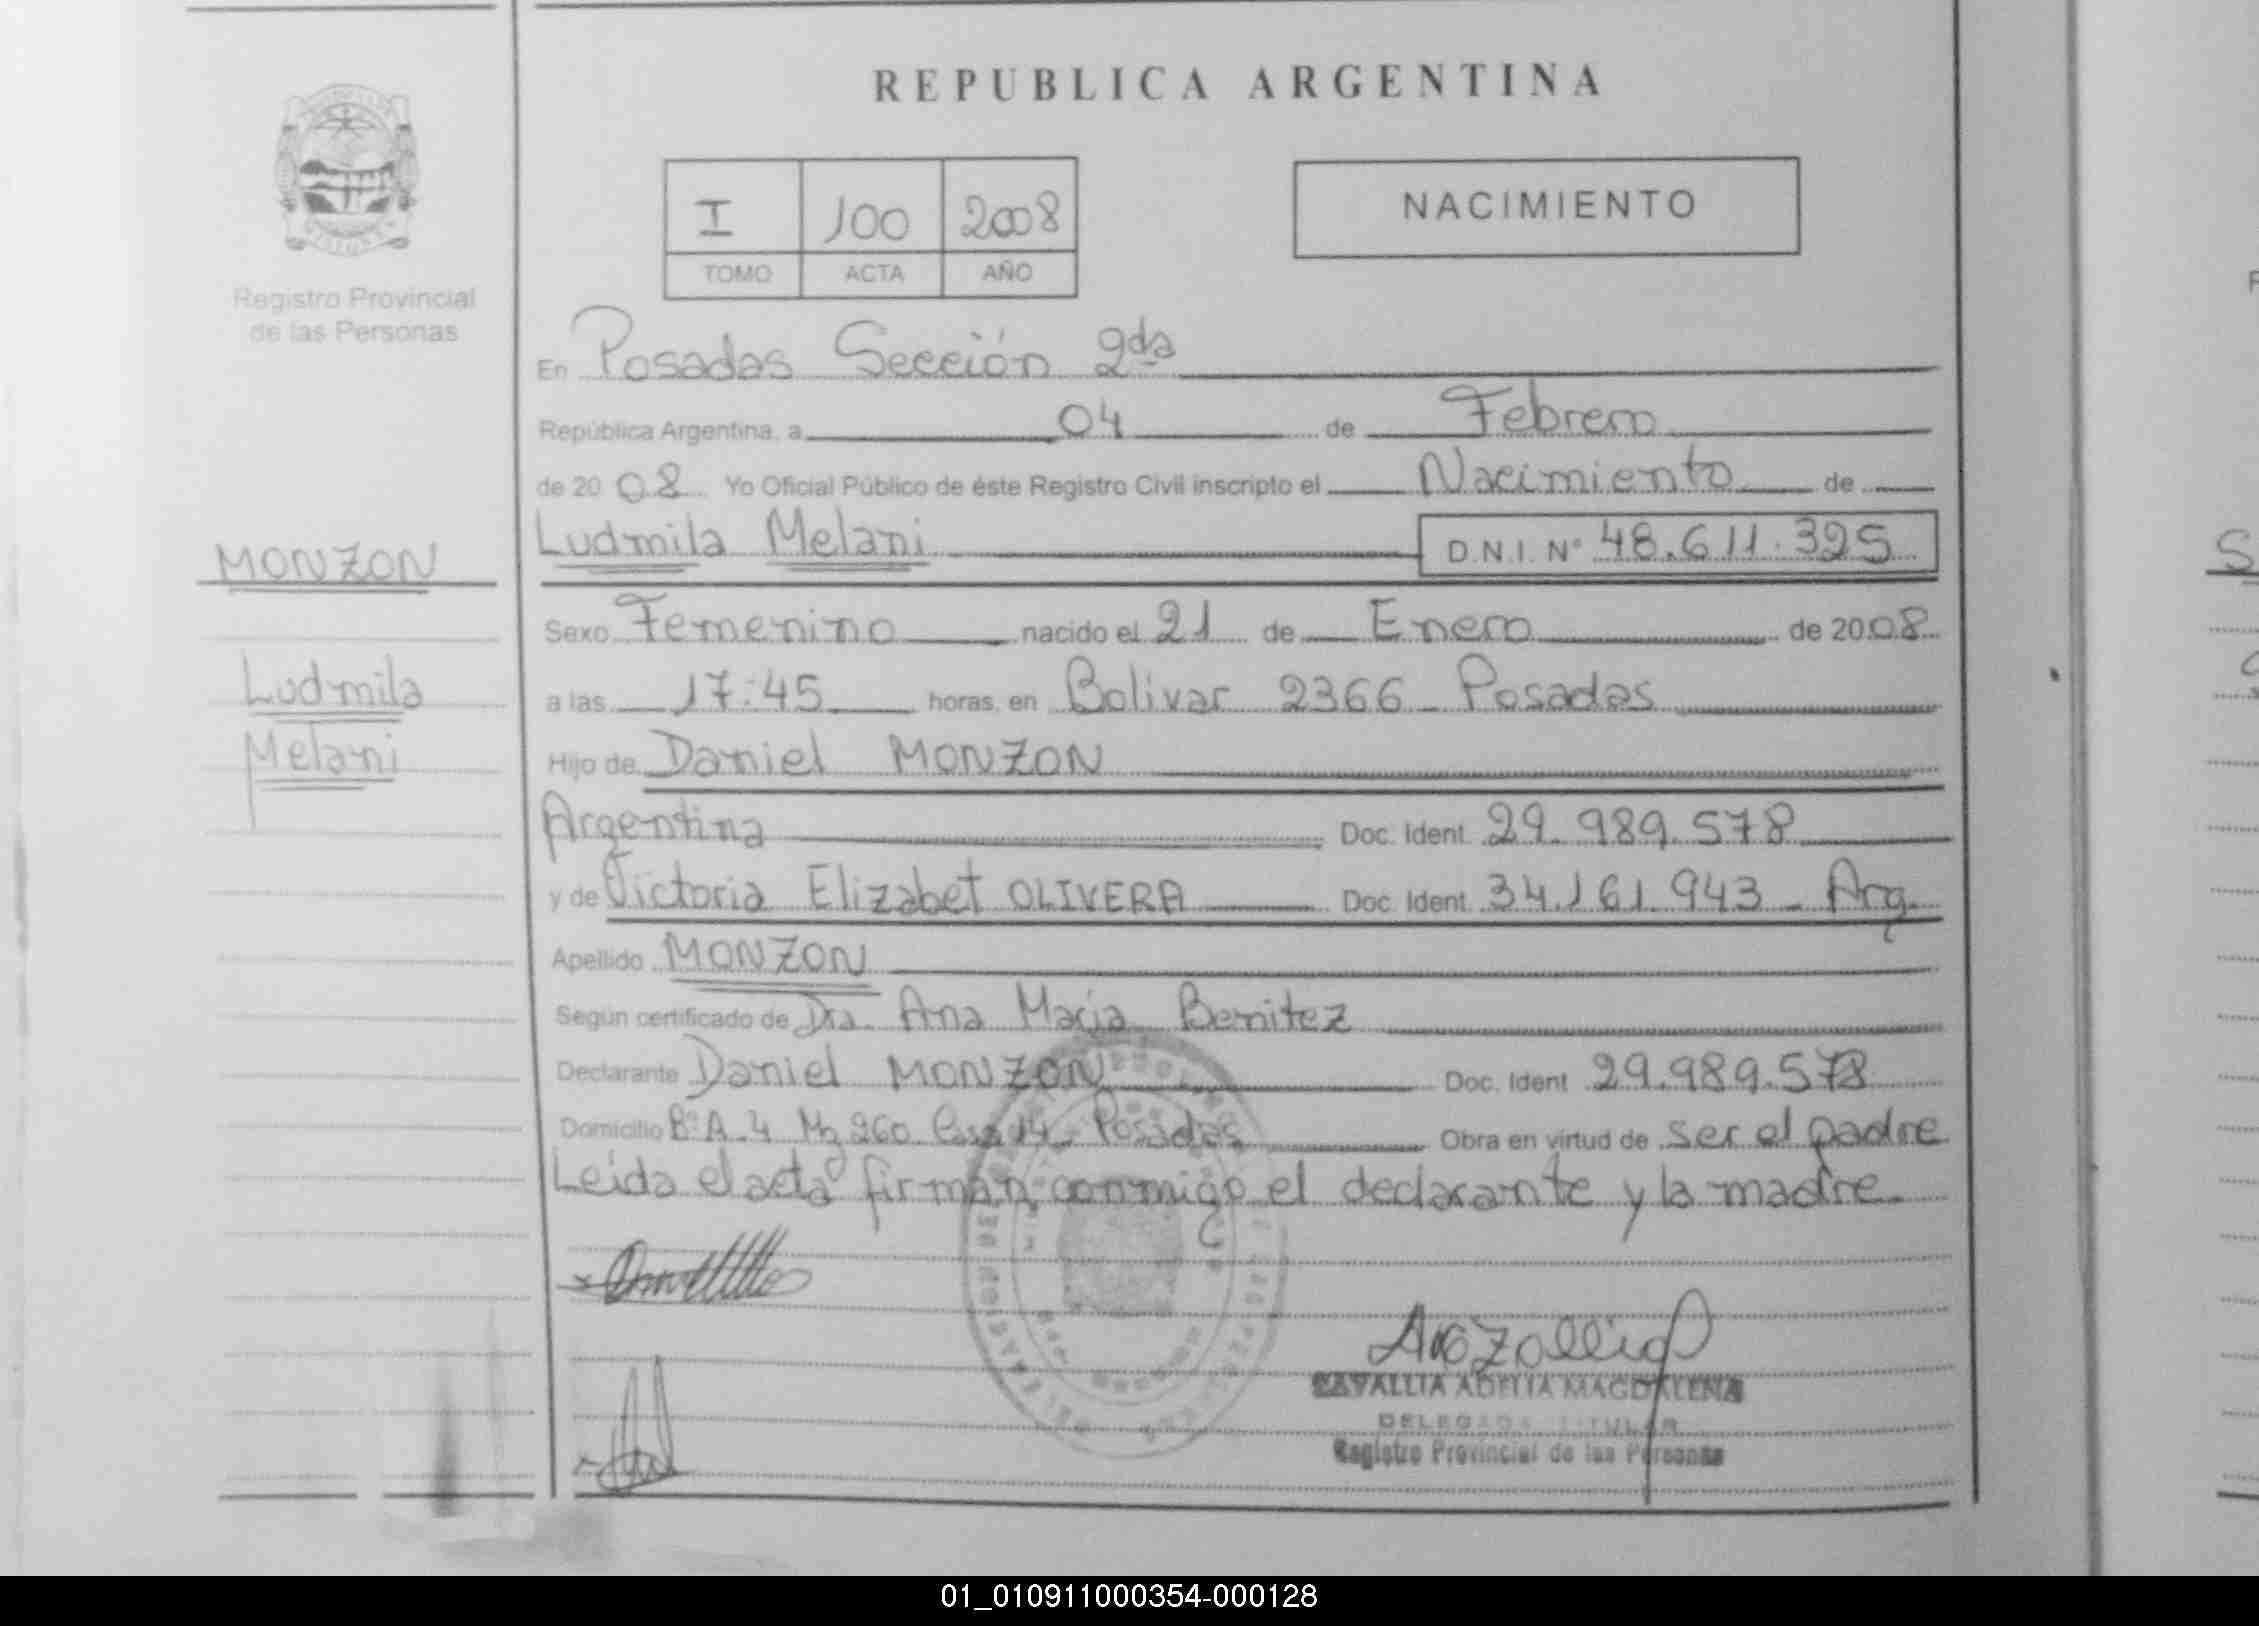 REPUBLICA ARGENTINA
Registro Provincial
de las Personas
I 100 2008
TOMO ACTA AÑO
NACIMIENTO
En Posadas Sección 2da
República Argentina, a 04 de Febrero
de 2008 Yo Oficial Público de éste Registro Civil inscripto el Nacimiento de
Ludmila Melani D.N.I. N° 48.611.395
MONZON
Ludmila
Melani
Sexo Femenino nacido el 21 de Enero de 2008
a las 17:45 horas, en Bolivar 2366 - Posadas
Hijo de Daniel MONZON
Argentina Doc. Ident. 29.989.578
y de Victoria Elizabet OLIVERA Doc. Ident. 34.161.943 - Arg.
Apellido MONZON
Según certificado de Dra. Ana Maria Benitez
Declarante Daniel MONZON Doc. Ident 29.989.578
Domicilio B° A-4 Mz 260 Casa 14 - Posadas Obra en virtud de ser el padre
Leida el acta firman conmigo el declarante y la madre.
CAVALLIA ADELIA MAGDALENA
DELEGADA TITULAR
Registro Provincial de las Personas
01_010911000354-000128